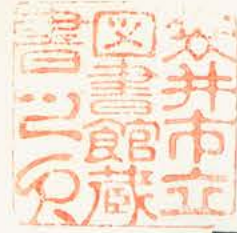 井市立
図書館蔵
書之印